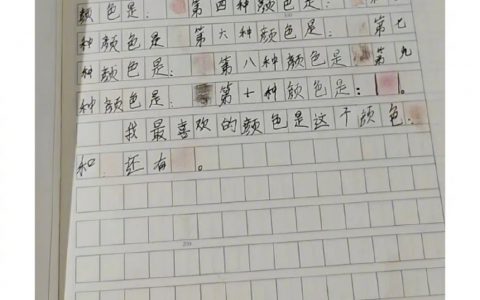 颜色是： 第四种颜色是：
种颜色是： 第六种颜色是： 第七
种颜色是： 第八种颜色是： 第九
种颜色是： 第十种颜色是： 。
我最喜欢的颜色是这个颜色：
和： 还有 。
200